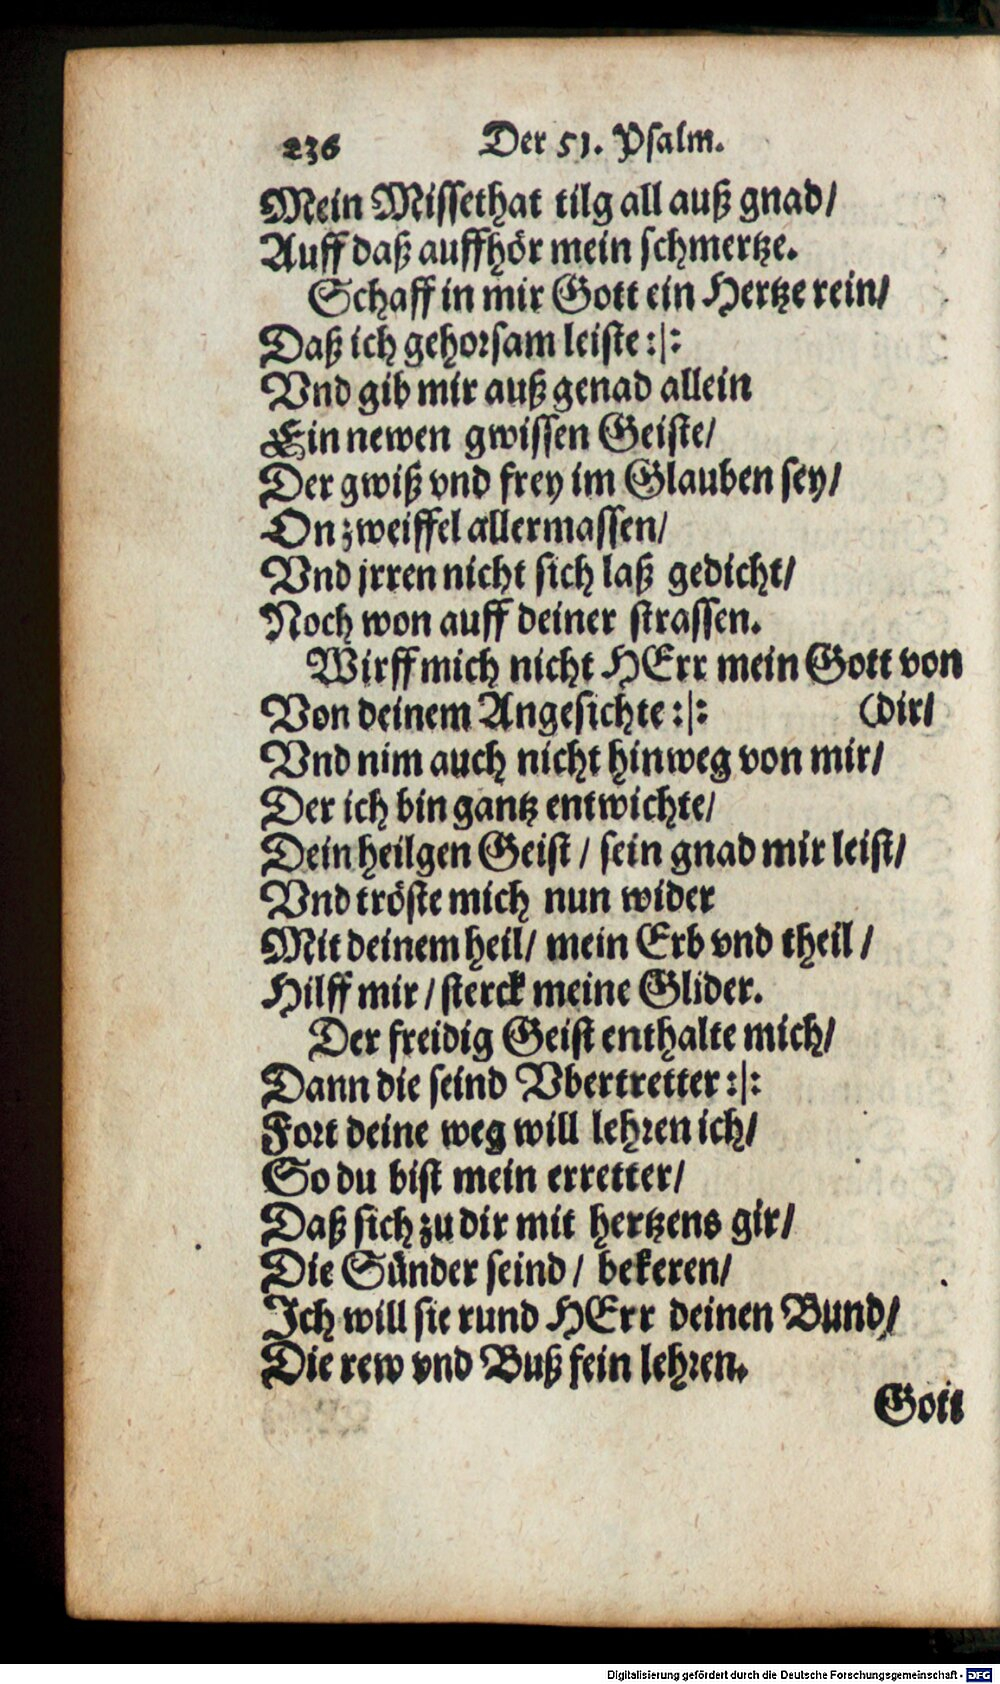 236 Der 51. Psalm.
Mein Missethat tilg all auß gnad/
Auff daß auffhör mein schmertze.
Schaff in mir Gott ein Hertze rein/
Daß ich gehorsam leiste :|:
Vnd gib mir auß genad allein
Ein newen gwissen Geiste/
Der gwiß vnd frey im Glauben sey/
On zweiffel allermassen/
Vnd jrren nicht sich laß gedicht/
Noch won auff deiner strassen.
Wirff mich nicht HErr mein Gott von
Von deinem Angesichte :|: (dir/
Vnd nim auch nicht hinweg von mir/
Der ich bin gantz entwichte/
Dein heilgen Geist / sein gnad mir leist/
Vnd tröste mich nun wider
Mit deinem heil/ mein Erb vnd theil /
Hilff mir / sterck meine Glider.
Der freidig Geist enthalte mich/
Dann die seind Vbertretter :|:
Fort deine weg will lehren ich/
So du bist mein erretter/
Daß sich zu dir mit hertzens gir/
Die Sünder seind / bekeren/
Ich will sie rund HErr deinen Bund/
Die rew vnd Buß fein lehren.
Gott
Digitalisierung gefördert durch die Deutsche Forschungsgemeinschaft - DFG